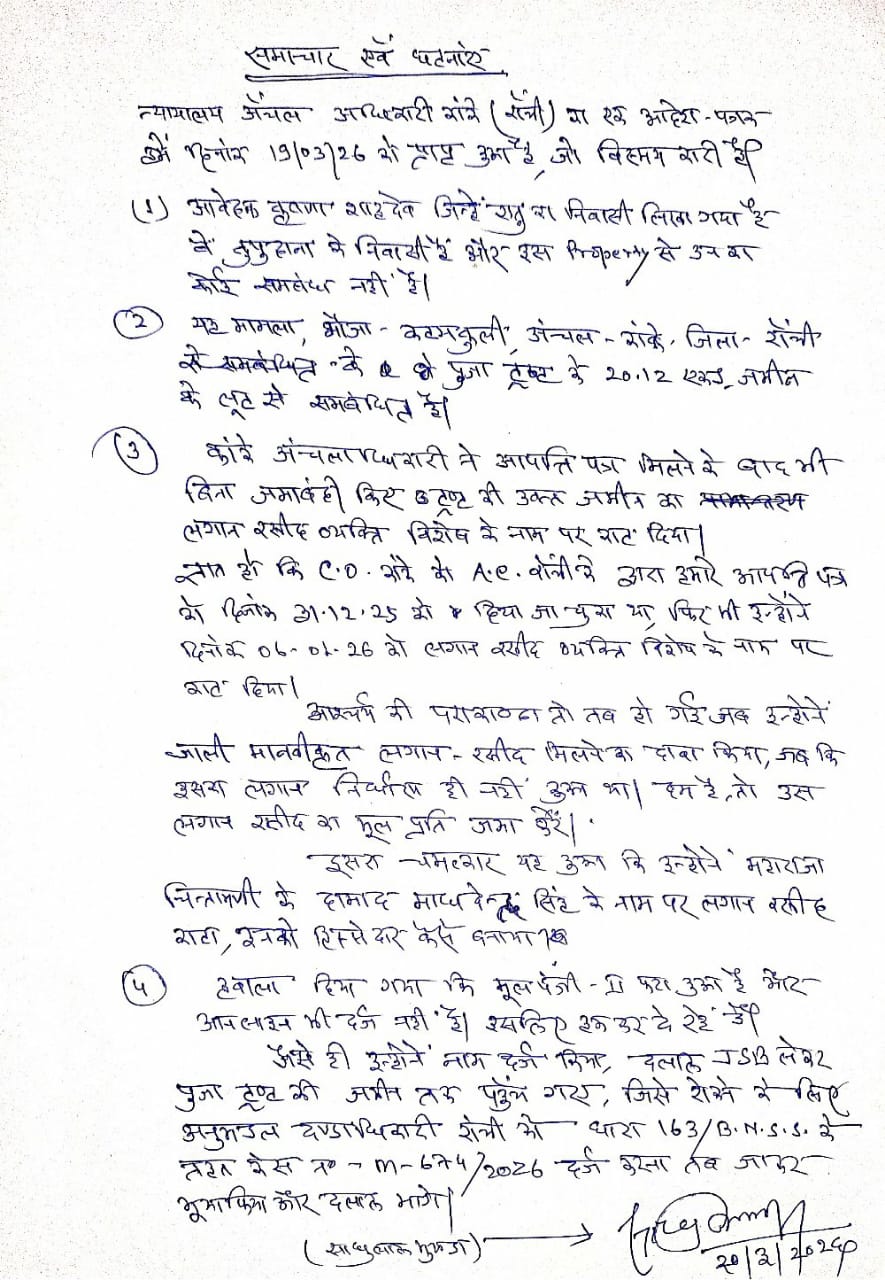 समाचार एवं घटनाएं
न्यायालय अंचल अधिकारी कांके (राँची) का एक आदेश-पत्रक
हमें दिनांक 19/03/26 को प्राप्त हुआ है, जो विस्मय कारी है।
(1) आवेदक कृष्णा शाहदेव जिन्हें रातु का निवासी लिखा गया है
वे, के निवासी हैं और इस Property से उन का
कोई सम्बंध नहीं है।
(2) यह मामला, मौजा- कटमकुली, अंचल-कांके, जिला- राँची
से सम्बंधित के पुजा ट्रष्ट के 20.12 एकड़ जमीन
के लूट से सम्बंधित है।
(3) कांके अंचलाधिकारी ने आपत्ति पत्र मिलने के बाद भी
बिना जमाबंदी किए ट्रष्ट की उक्त जमीन का
लगान रसीद व्यक्ति विशेष के नाम पर काट दिया।
ज्ञात हो कि C.O. कांके को A.C. राँची के द्वारा हमारे आपत्ति पत्र
को दिनांक 31.12.25 को दिया जा चुका था, फिर भी इन्होंने
दिनांक 06-01-26 को लगान रसीद व्यक्ति विशेष के नाम पर
काट दिया।
आश्चर्य की पराकाष्ठा तो तब हो गई जब इन्होनें
जाली मानवीकृत लगान-रसीद मिलने का दावा किया, जब कि
इसका लगान निर्धारण ही नहीं हुआ था। दम है, तो उस
लगान रसीद का मूल प्रति जमा करें।
दूसरा चमत्कार यह हुआ कि इन्होनें महाराजा
चिन्तामणी के दामाद माधवेन्द्र सिंह के नाम पर लगान रसीद
काटा, इनको हिस्सेदार कैसे बनाया
(4) हवाला दिया गया कि मूल पंजी-II फटा हुआ है और
आनलाइन भी दर्ज नहीं है। इसलिए हम कर दे रहे हैं।
जैसे ही इन्होनें नाम दर्ज किया, दलाल JSB लेकर
पुजा ट्रष्ट की जमीन तक पहुँच गए, जिसे रोकने के लिए
अनुमंडल दण्डाधिकारी राँची को धारा 163/B.N.S.S. के
तहत केस न०-M-674/2026 दर्ज करना तब जाकर
भूमाफिया और दलाल भागे।
20/3/2026